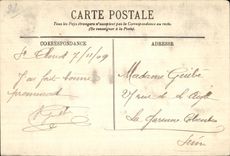 CARTE POSTALE
Tous les Pays étrangers n'acceptent pas la Correspondance au recto.
(Se renseigner à la Poste)
CORRESPONDANCE
ADRESSE
St Cloud 7/11/09
J'ai fait bonne
promenade
Madame
27 rue de
La Garenne Colombes
Seine